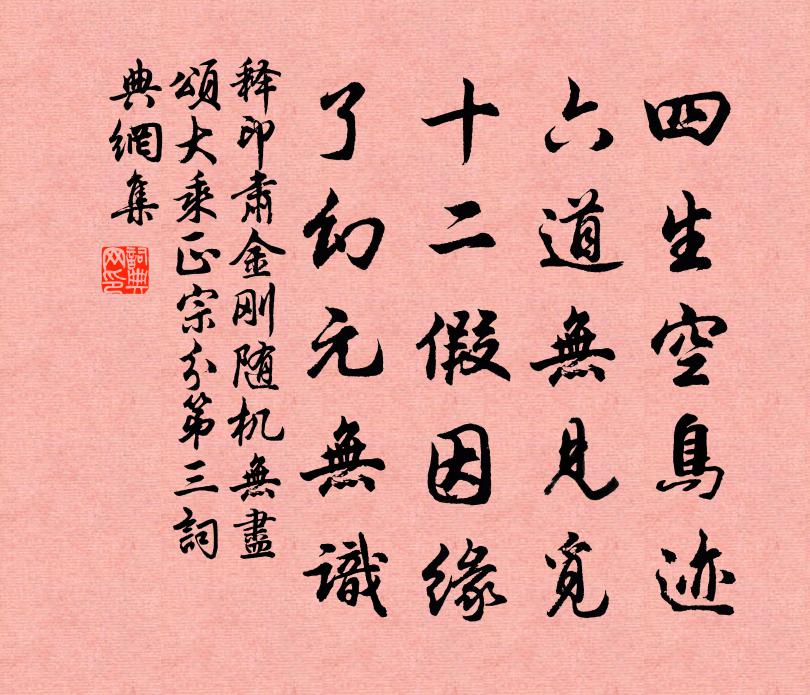 四生空鳥迹
六道無見覓
十二假因緣
了幻元無識
释印肃金刚随机無盡
頌大乘正宗分第三詞
典網集
詞典
网印